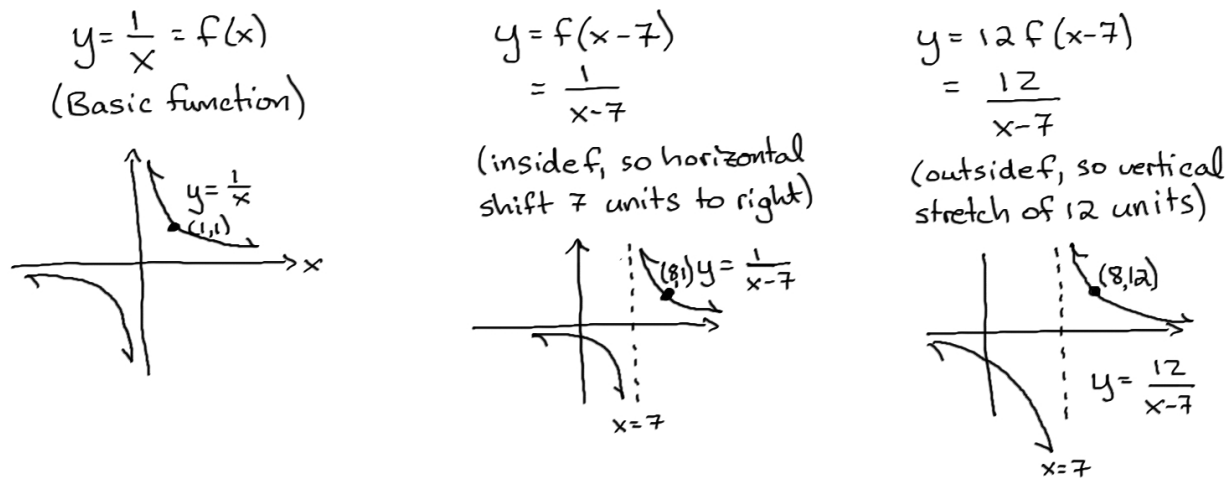 y = 1/x = f(x)
(Basic function)
y = 1/x
(1,1)
x
y = f(x-7)
= 1/(x-7)
(inside f, so horizontal
shift 7 units to right)
(8,1) y = 1/(x-7)
x=7
y = 12 f(x-7)
= 12/(x-7)
(outside f, so vertical
stretch of 12 units)
(8,12)
y = 12/(x-7)
x=7